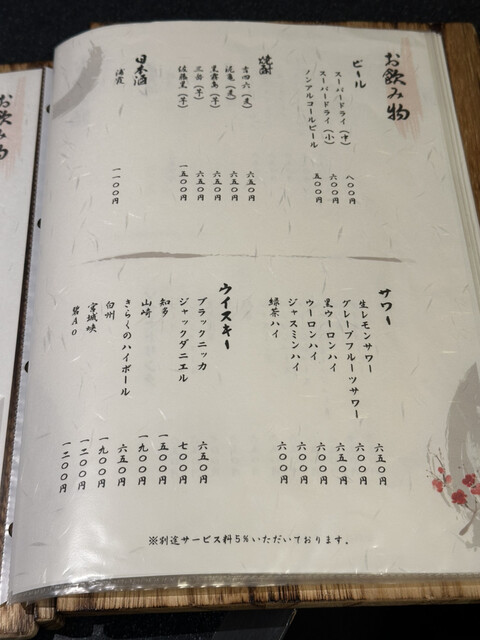 お飲み物
ビール
スーパードライ（中） 八〇〇円
スーパードライ（小） 六〇〇円
ノンアルコールビール 五〇〇円
焼酎
吉四六（麦） 六五〇円
泥亀（麦） 六五〇円
黒霧島（芋） 六五〇円
三岳（芋） 六五〇円
佐藤黒（芋） 一五〇〇円
日本酒
浦霞 一一〇〇円
サワー
生レモンサワー 六五〇円
グレープフルーツサワー 六〇〇円
黒ウーロンハイ 六〇〇円
ウーロンハイ 六〇〇円
ジャスミンハイ 六〇〇円
緑茶ハイ 六〇〇円
ウイスキー
ブラックニッカ 六五〇円
ジャックダニエル 七〇〇円
知多 一五〇〇円
山崎 一九〇〇円
きらくのハイボール 六五〇円
白州 一九〇〇円
宮城峡 一二〇〇円
碧Ao 一二〇〇円
※別途サービス料5%いただいております。
お飲み物